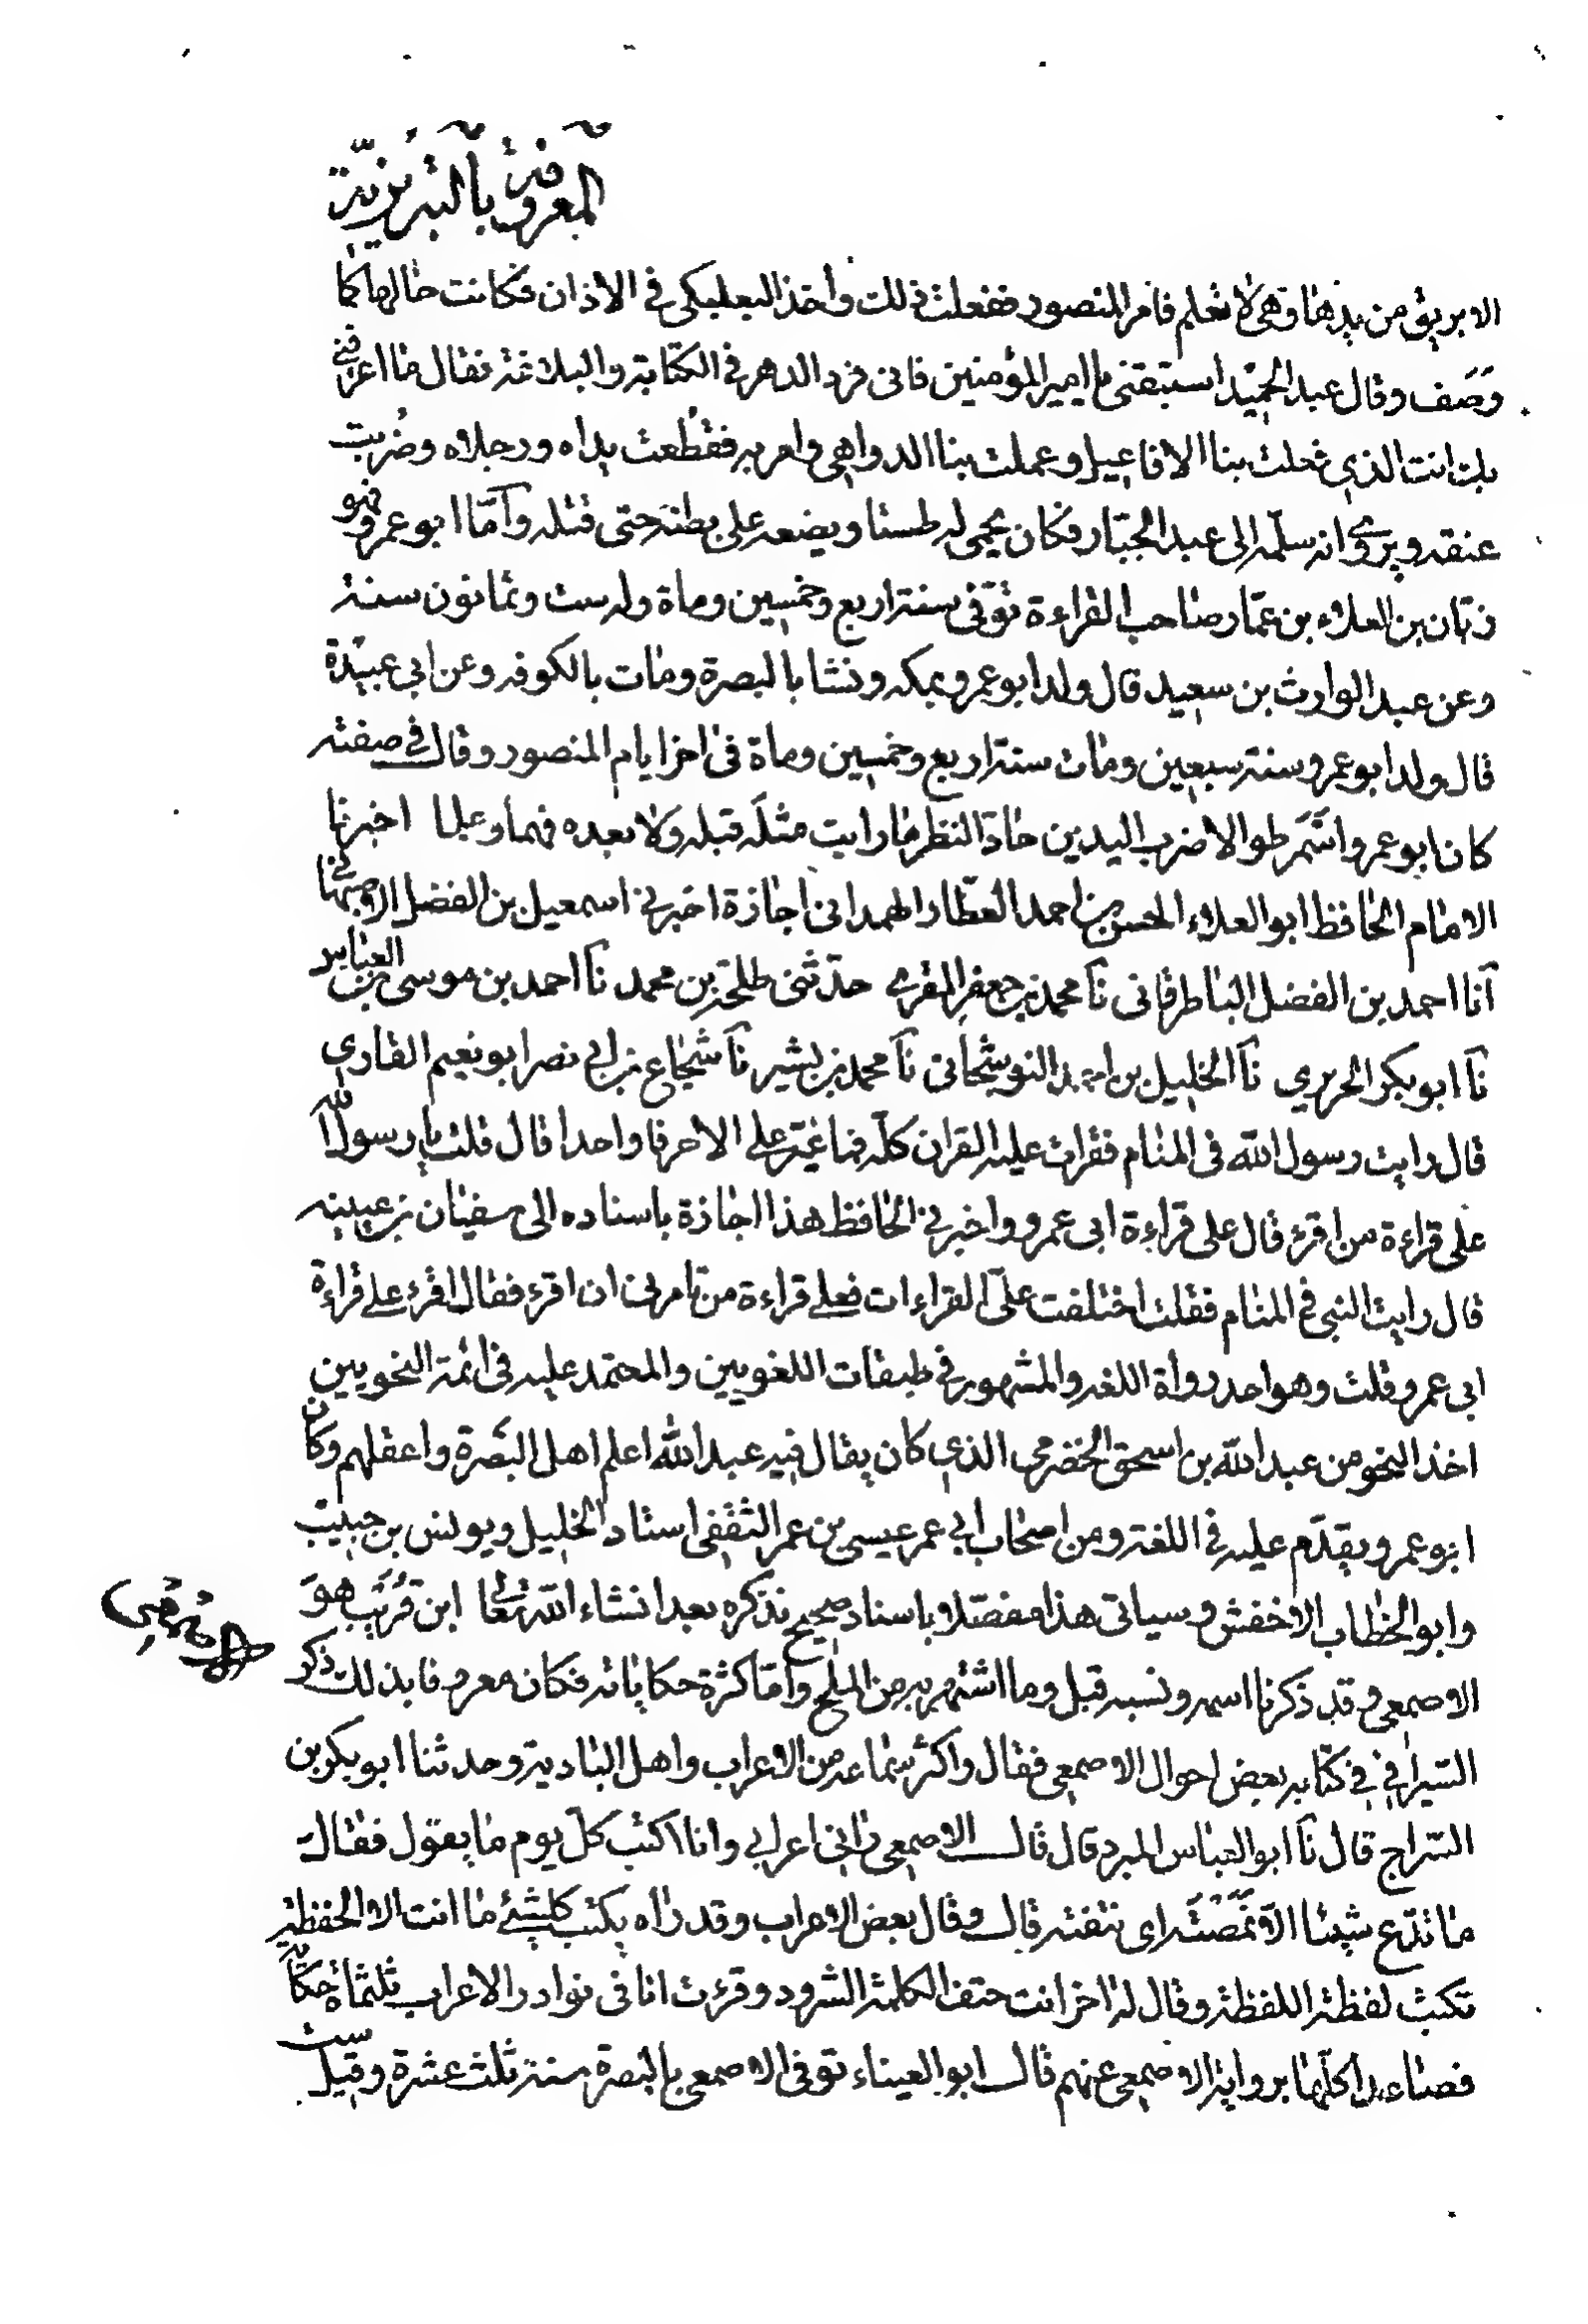 المعروفة بالتبريزية
الابريق من يدها وهى لا تعلم فامر المنصور ففعلت ذلك وأخذ البعلبكى فى الاذان فكانت حالها كما
وَصَف وقال عبد الحميد استبقنى يا امير المؤمنين فانى فرد الدهر فى الكتابة والبلاغة فقال ما اعرفنى
بك انت الذي فعلت بنا الافاعيل وعملت بنا الدواهى وامر به فقُطعت يداه ورجلاه وضُربت
عنقه ويروى انه سلّمه الى عبد الجبّار فكان يحمى له طستا ويضعه على بطنه حتى قتله وأمّا ابو عمرو فهو
زبّان بن العلاء بن عمّار صاحب القراءة توفّى سنة اربع وخمسين وماة وله ست وثمانون سنة
وعن عبد الوارث بن سعيد قال ولد ابو عمرو بمكه ونشا بالبصرة ومات بالكوفه وعن ابي عبيدة
قال ولد ابو عمرو سنة سبعين ومات سنة اربع وخمسين وماة فى اخر ايام المنصور وقال فى صفته
كان ابو عمرو اسمر طوالا ضرب اليدين حادّ النظر ما رايت مثله قبله ولا بعده فهما وعلما اخبرنا
الامام الحافظ ابو العلاء الحسن بن احمد العطّار الهمدانى اجازة اخبرنى اسمعيل بن الفضل الاصبهانى
آنا احمد بن الفضل الباطرقانى نآ محمد بن جعفر المقرى حدّثنى طلحة بن محمد نآ احمد بن موسى بن العباس
نآ ابو بكر الحريري نآ الخليل بن النوشجانى نآ محمد بن بشير نآ شجاع بن ابى نصر ابو نعيم القاري
قال رايت رسول الله فى المنام فقرات عليه القران كلّه فما غيّر على الا حرفا واحدا قال قلت يا رسول الله
على قراءة من اقرء قال على قراءة ابى عمرو واخبرنى الحافظ هذا اجازة باسناده الى سفيان بن عيينه
قال رايت النبى فى المنام فقلت اختلفت علىّ القراءات فعلى قراءة من تامرنى ان اقرء فقال اقرء على قراءة
ابى عمرو قلت وهو احد رواة اللغه والمشهور فى طبقات اللغويين والمعتمد عليه فى ائمة النحويين
اخذ النحو من عبد الله بن اسحق الحضرمى الذي كان يقال فيه عبد الله اعلم اهل البصرة واعقلهم وكان
ابو عمرو يقدّم عليه فى اللغة ومن اصحاب ابى عمر عيسى بن عمر الثقفى استاد الخليل ويونس بن حبيب
وابو الخطاب الاخفش وسياتى هذا مفصّلا باسناد صحيح نذكره بعد انشاء الله تعالى ابن قُرَيب هو
الاصمعى
الاصمعى وقد ذكرنا اسمه ونسبه قبل وما اشتهر به من الملح وامّا كثرة حكاياته فكان معروفا بذلك ذكر
السّيرافى فى كتابه بعض احوال الاصمعى فقال واكثر سماعه من الاعراب واهل البادية وحدثنا ابو بكر بن
السّراج قال نآ ابو العباس المبرد قال قال الاصمعى رانى اعرابى وانا اكتب كلّ يوم ما يقول فقال
ما تدع شيئا الّا نَمَصْتَه اى نتفته قال وقال بعض الاعراب وقد راه يكتب كلشئ ما انت الا الحفظة
تكتب لفظة اللفظة وقال له اخر انت حتف الكلمة الشرود وقرءت انا فى نوادر الاعراب ثلثماة حكاية
فصاعدا كلّها برواية الاصمعى عنهم قال ابو العيناء توفى الاصمعى بالبصرة سنة ثلث عشرة وقيل ست